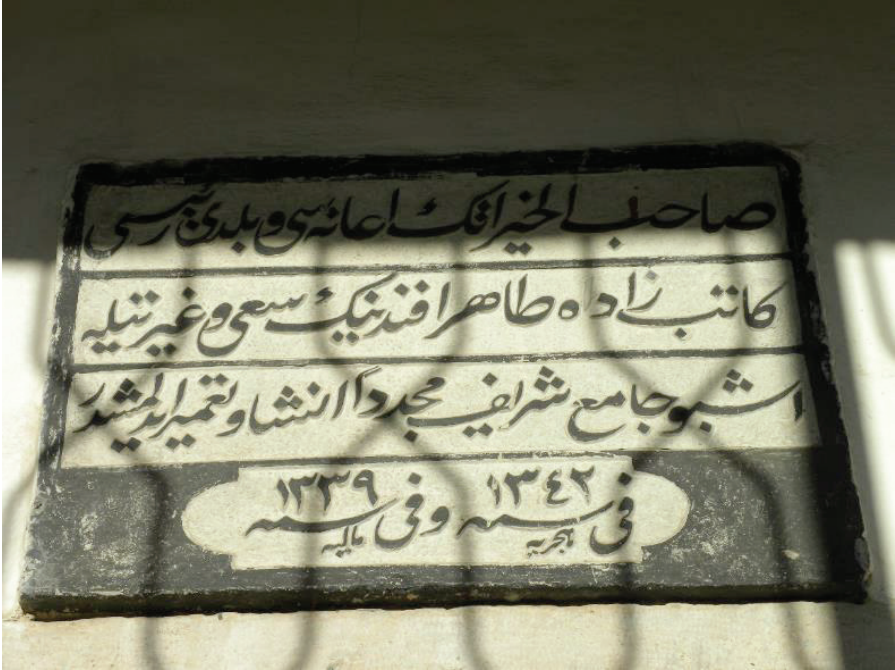 صاحب الخيراتك اعانه سی و بلديه رئيسی
كاتب زاده طاهر افندينك سعی و غيرتيله
اشبو جامع شريف مجددا انشا و تعمير ايدلمشدر
فی سنه هجريه ١٣٤٢ وفی سنه ماليه ١٣٣٩